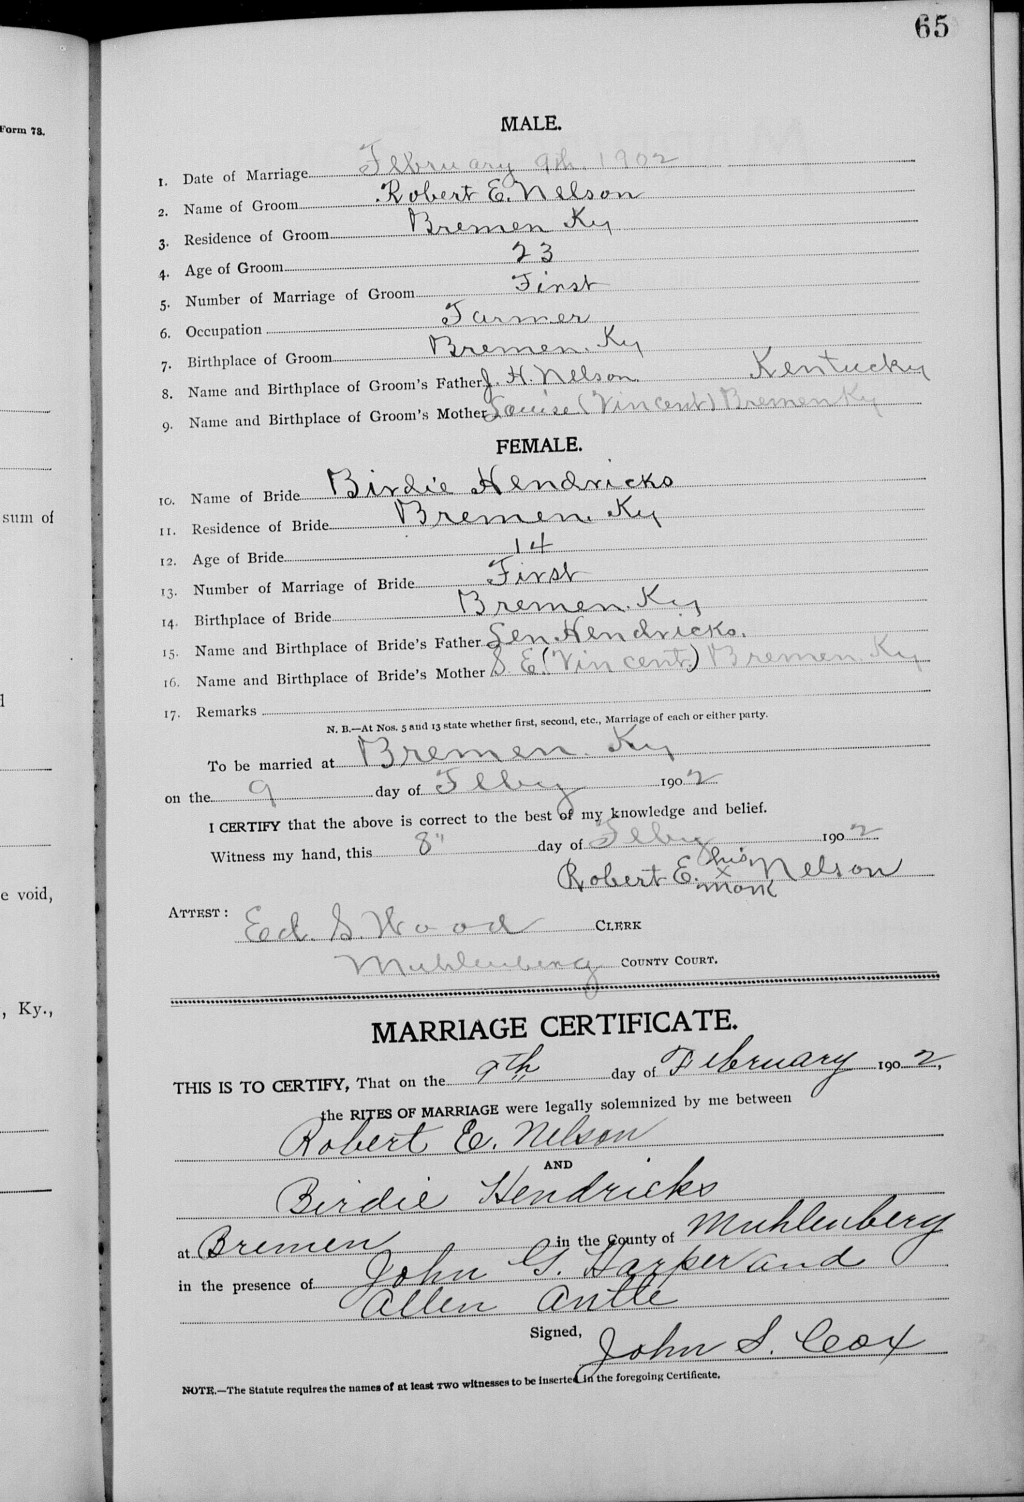 65
Form 73.
MALE.
1. Date of Marriage February 9th. 1902
2. Name of Groom Robert E. Nelson
3. Residence of Groom Bremen Ky
4. Age of Groom 23
5. Number of Marriage of Groom First
6. Occupation Farmer
7. Birthplace of Groom Bremen. Ky
8. Name and Birthplace of Groom's Father J. H. Nelson. Kentucky
9. Name and Birthplace of Groom's Mother Louise (Vincent) Bremen Ky
FEMALE.
10. Name of Bride Birdie Hendricks
sum of
11. Residence of Bride Bremen. Ky
12. Age of Bride 14
13. Number of Marriage of Bride First
14. Birthplace of Bride Bremen. Ky
15. Name and Birthplace of Bride's Father Len Hendricks.
16. Name and Birthplace of Bride's Mother S. E. (Vincent.) Bremen Ky
17. Remarks
N. B.—At Nos. 5 and 13 state whether first, second, etc., Marriage of each or either party.
To be married at Bremen. Ky
on the 9 day of Feby 1902
I CERTIFY that the above is correct to the best of my knowledge and belief.
Witness my hand, this 8" day of Feby 1902
his
Robert E. x Nelson
mark
e void,
ATTEST: Ed. S. Wood CLERK
Muhlenberg COUNTY COURT.
, Ky.,
MARRIAGE CERTIFICATE.
THIS IS TO CERTIFY, That on the 9th day of February 1902,
the RITES OF MARRIAGE were legally solemnized by me between
Robert E. Nelson
AND
Birdie Hendricks
at Bremen in the County of Muhlenberg
in the presence of John G. Harper and
Allen Antle
Signed, John S. Cox
NOTE.—The Statute requires the names of at least TWO witnesses to be inserted in the foregoing Certificate.